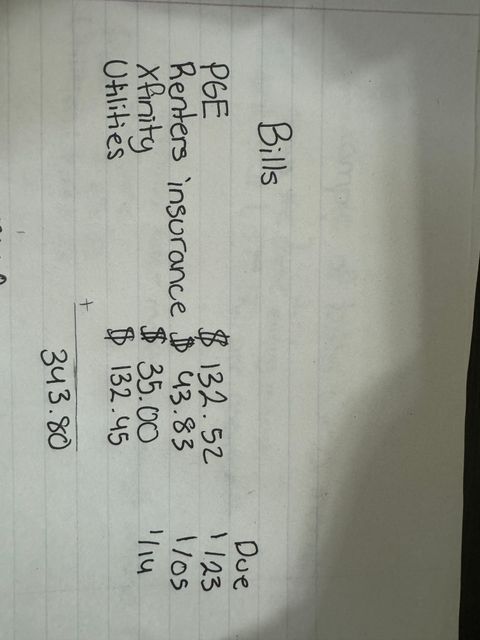 Bills
Due
PGE $ 132.52 1/23
Renters insurance $ 43.83 1/05
Xfinity $ 35.00 1/14
Utilities $ 132.45
+
343.80